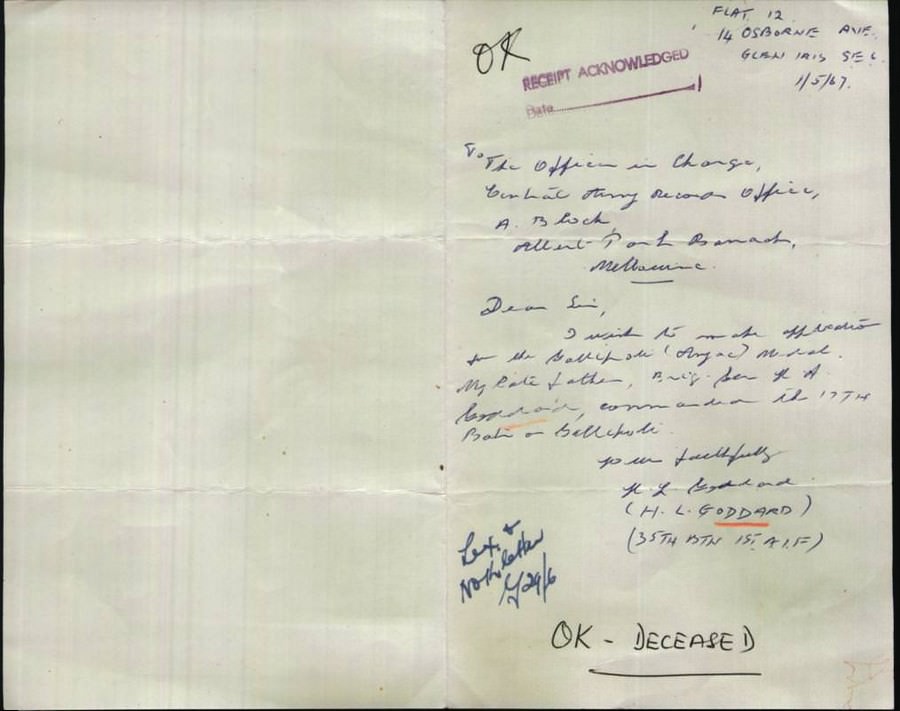 FLAT 12
14 OSBORNE AVE.
GLEN IRIS SE6.
1/5/67.
OK
RECEIPT ACKNOWLEDGED
Date
To The Officer in Charge,
Central Army Records Office,
A. Block
Albert Park Barracks,
Melbourne.
Dear Sir,
I wish to make application
for the Gallipoli (Anzac) Medal.
My late father, Brig. Gen H A
Goddard, commanded the 17TH
Batn on Gallipoli.
Yours faithfully
H L Goddard
(H. L. GODDARD)
(35TH BTN 1ST A.I.F)
Let. &
29/6
OK - DECEASED